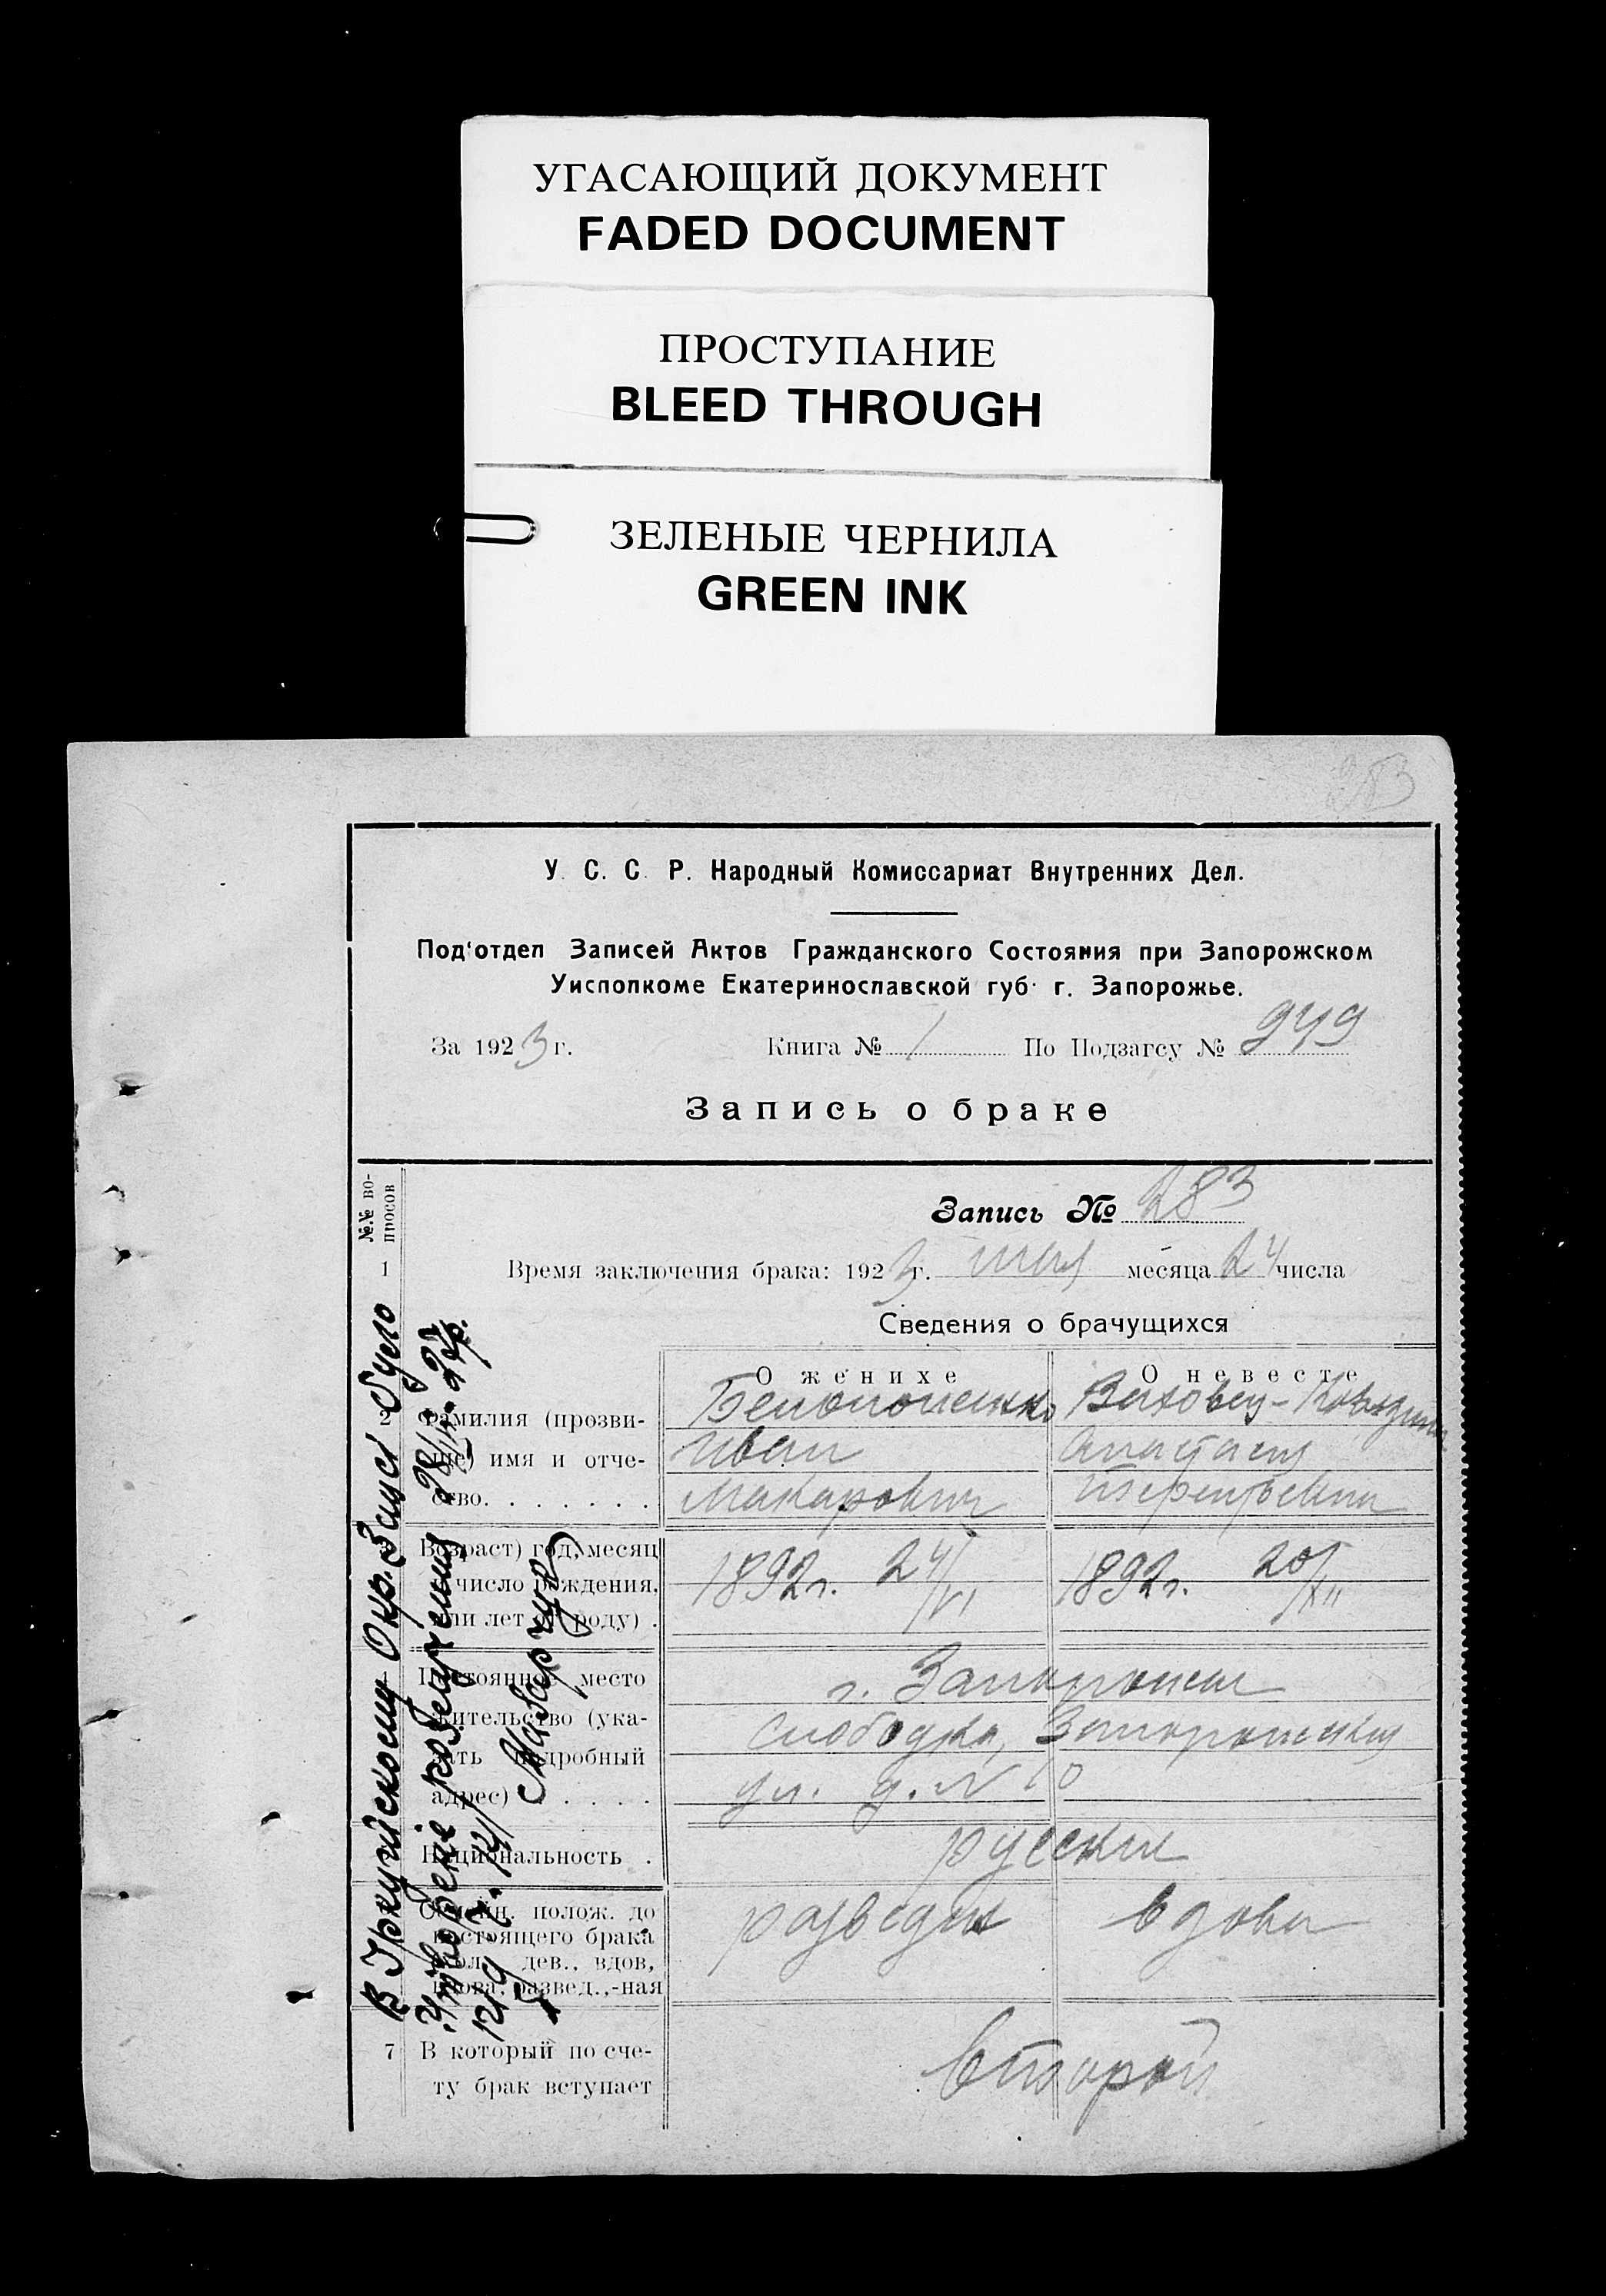 УГАСАЮЩИЙ ДОКУМЕНТ
FADED DOCUMENT
ПРОСТУПАНИЕ
BLEED THROUGH
ЗЕЛЕНЫЕ ЧЕРНИЛА
GREEN INK
283
У. С. С. Р. Народный Комиссариат Внутренних Дел.
Под'отдел Записей Актов Гражданского Состояния при Запорожском
Уисполкоме Екатеринославской губ. г. Запорожье.
За 1923 г. Книга № 1 По Подзагсу № 949
Запись о браке
№№ во-
просов
Запись № 283
1 Время заключения брака: 1923 г. мая месяца 24 числа
Сведения о брачущихся
О женихе О невесте
2 Фамилия (прозви-
ще) имя и отче-
ство.
Иван
Макарович
Анастасия
Терентьевна
Возраст) год, месяц
число рождения,
или лет от роду)
1892 г. 24/VI
1892 г. 20/XII
4 Постоянное место
жительство (ука-
зать подробный
адрес)
г. Запорожье
слободка, Запорожская
ул. д. № 10
Национальность
русские
Семейн. полож. до
настоящего брака
хол., дев., вдов,
вдова, развед.,-ная
разведен
вдова
7 В который по сче-
ту брак вступает
второй